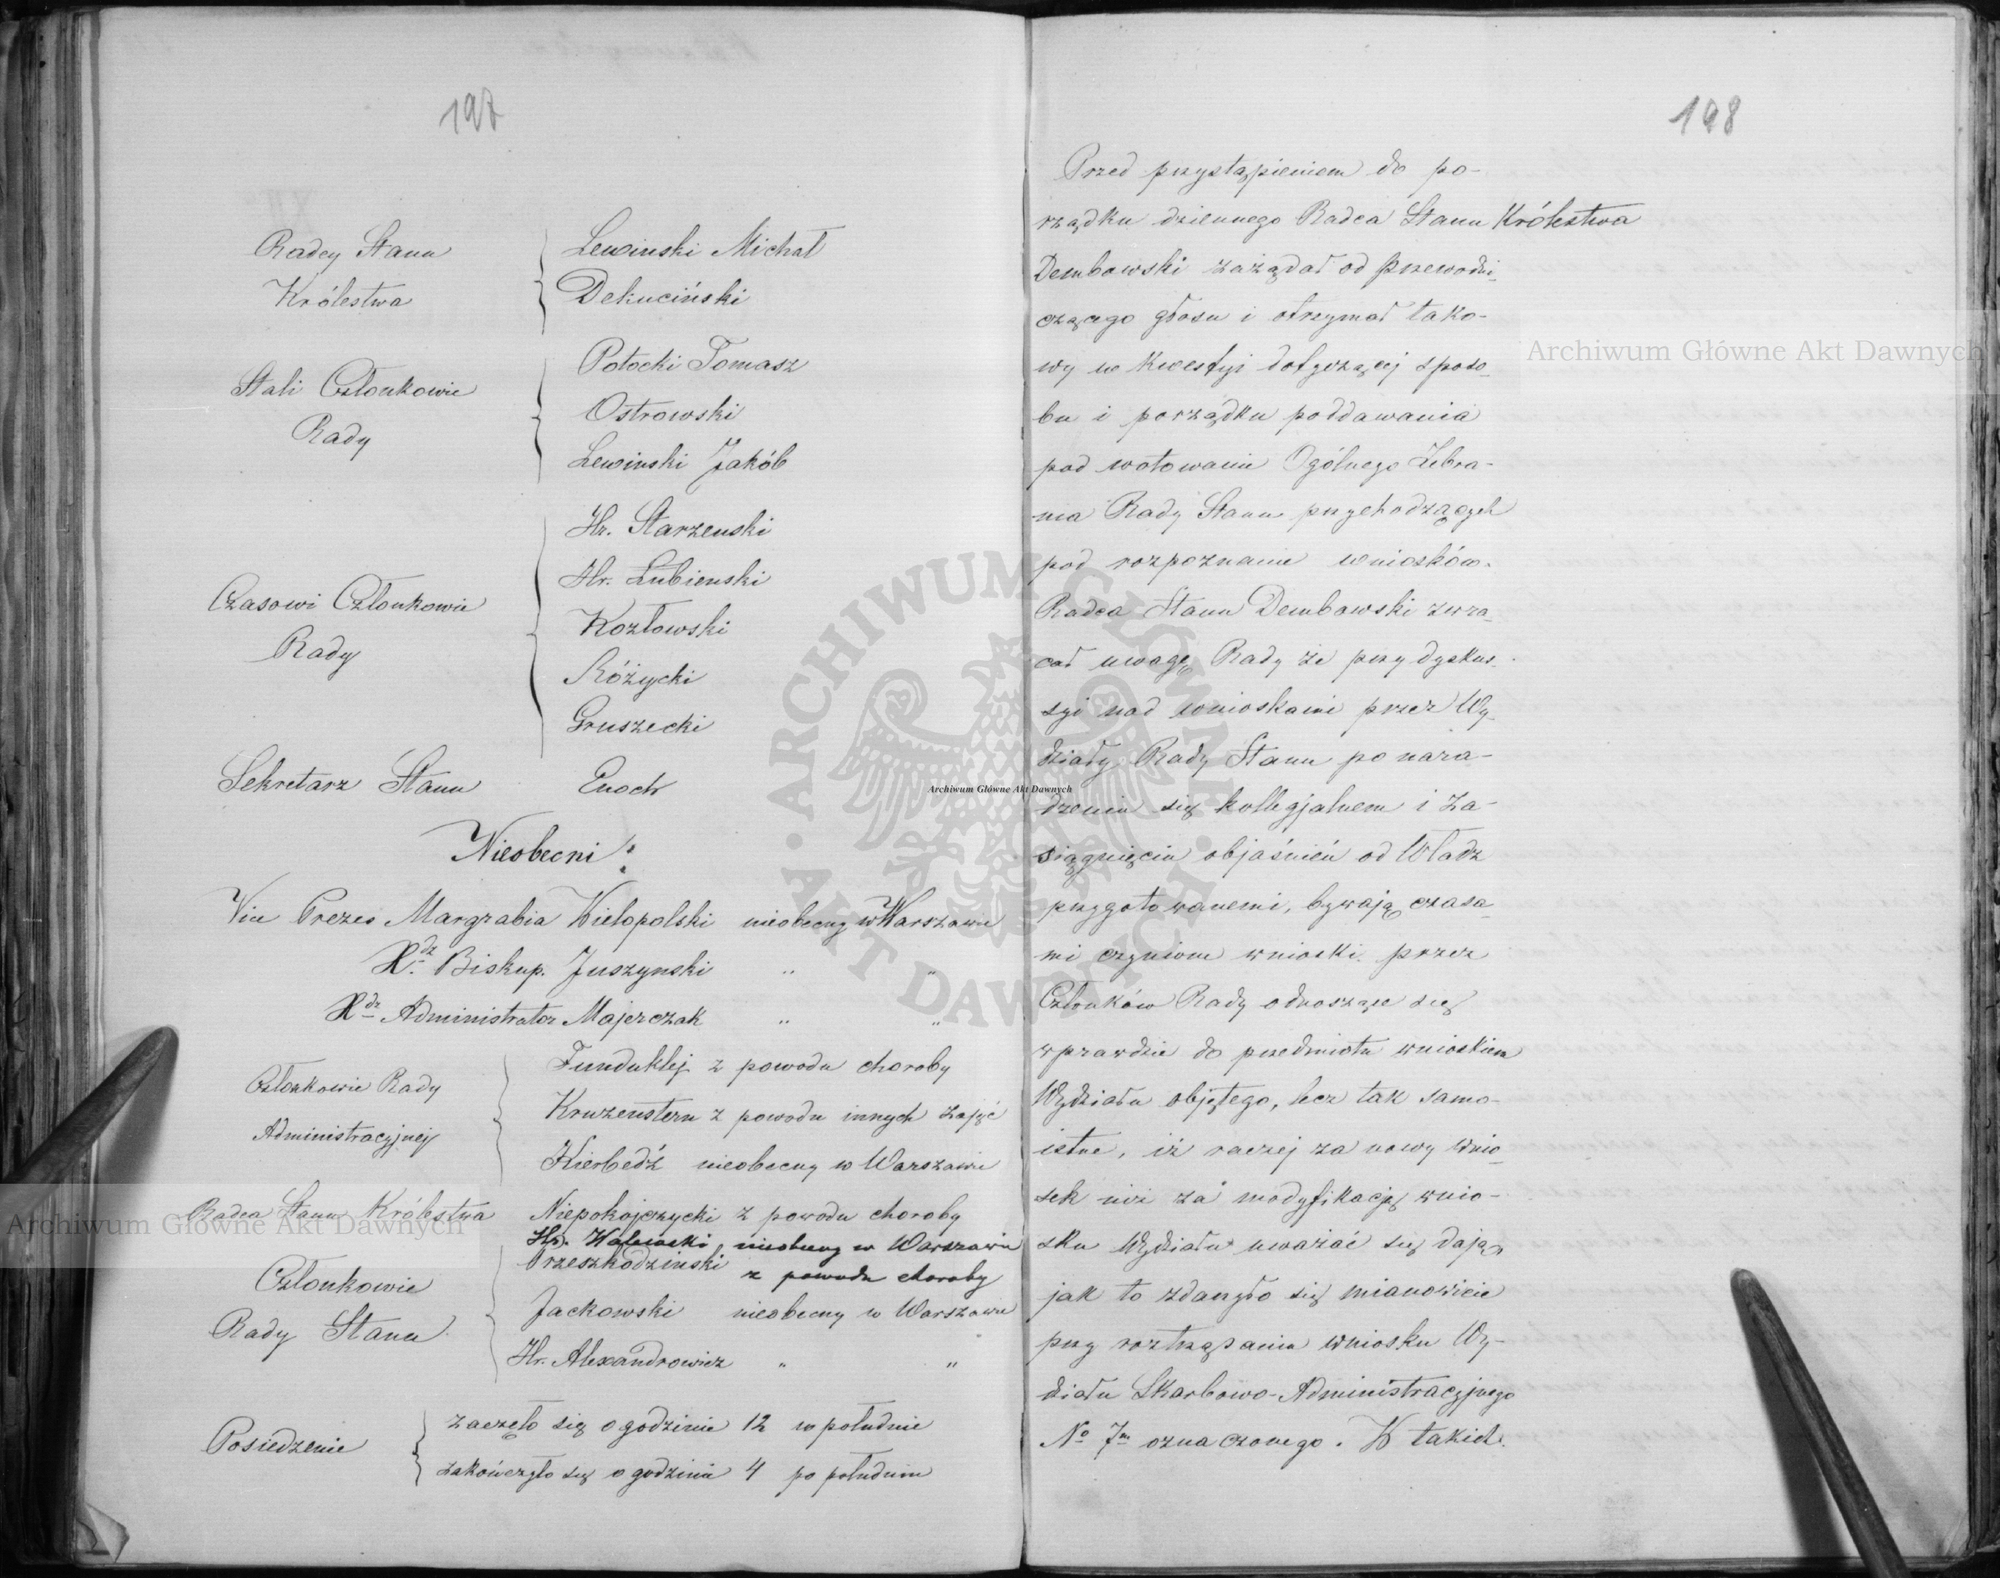 197
Radcy Stanu
Królestwa
Lewinski Michał
Dekuciński
Stali Członkowie
Rady
Potocki Tomasz
Ostrowski
Lewinski Jakób
Czasowi Członkowie
Rady
Hr. Starzenski
Hr. Łubienski
Kozłowski
Różycki
Gruszecki
Sekretarz Stanu Enoch
Nieobecni:
Vice Prezes Margrabia Wielopolski nieobecny w Warszawie
Xdz Biskup. Juszynski " "
Xdz Administrator Majerczak " "
Członkowie Rady
Administracyjnej
Funduklej z powodu choroby
Kruzenstern z powodu innych zajęć
Kierbedź nieobecny w Warszawie
Radca Stanu Królestwa Niepokojczycki z powodu choroby
Członkowie
Rady Stanu
Hr. Walewski, nieobecny w Warszawie
Trzeszkodzinski z powodu choroby
Jackowski nieobecny w Warszawie
Hr. Alexandrowicz " "
Posiedzenie
zaczęło się o godzinie 12 w południe
zakończyło się o godzinie 4 po południu
198
Przed przystąpieniem do po-
rządku dziennego Radca Stanu Królestwa
Dembowski zażądał od przewodni-
czącego głosu i otrzymał tako-
wy w kwestyi dotyczącej sposo-
bu i porządku poddawania
pod wotowanie Ogólnego Zebra-
nia Rady Stanu przychodzących
pod rozpoznanie wniosków.
Radca Stanu Dembowski zwra-
cał uwagę Rady że przy dyskus-
syi nad wnioskami przez Wy-
działy Rady Stanu po nara-
dzeniu się kollegjalnem i za-
siągnięciu objaśnień od Władz
przygotowanemi, bywają czasa-
mi czynione wnioski przez
Członków Rady odnoszące się
wprawdzie do przedmiotu wnioskiem
Wydziału objętego, lecz tak samo-
istne, iż raczej za nowy wnio-
sek niż za modyfikację wnio-
sku Wydziału uważać się dają,
jak to zdarzyło się mianowicie
przy roztrząsaniu wniosku Wy-
działu Skarbowo-Administracyjnego
No 7m oznaczonego. W takich
Archiwum Główne Akt Dawnych
Archiwum Główne Akt Dawnych
Archiwum Główne Akt Dawnych
ARCHIWUM GŁÓWNE AKT DAWNYCH